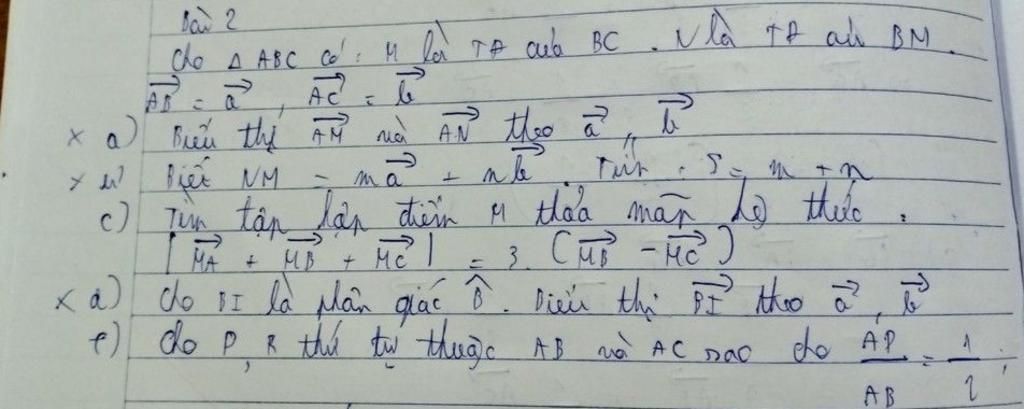 Bài 2
Cho △ ABC có : M là TĐ của BC . N là TĐ của BM .
AB = a , AC = b
x a) Biểu thị AM và AN theo a , b
x b) Biết NM = ma + nb . Tính : S = m + n
c) Tìm tập hợp điểm M thỏa mãn hệ thức :
| MA + MB + MC | = 3 . (MB - MC)
x d) Cho BI là phân giác B . Biểu thị BI theo a , b
e) Cho P, R thứ tự thuộc AB và AC sao cho AP/AB = 1/2 ;